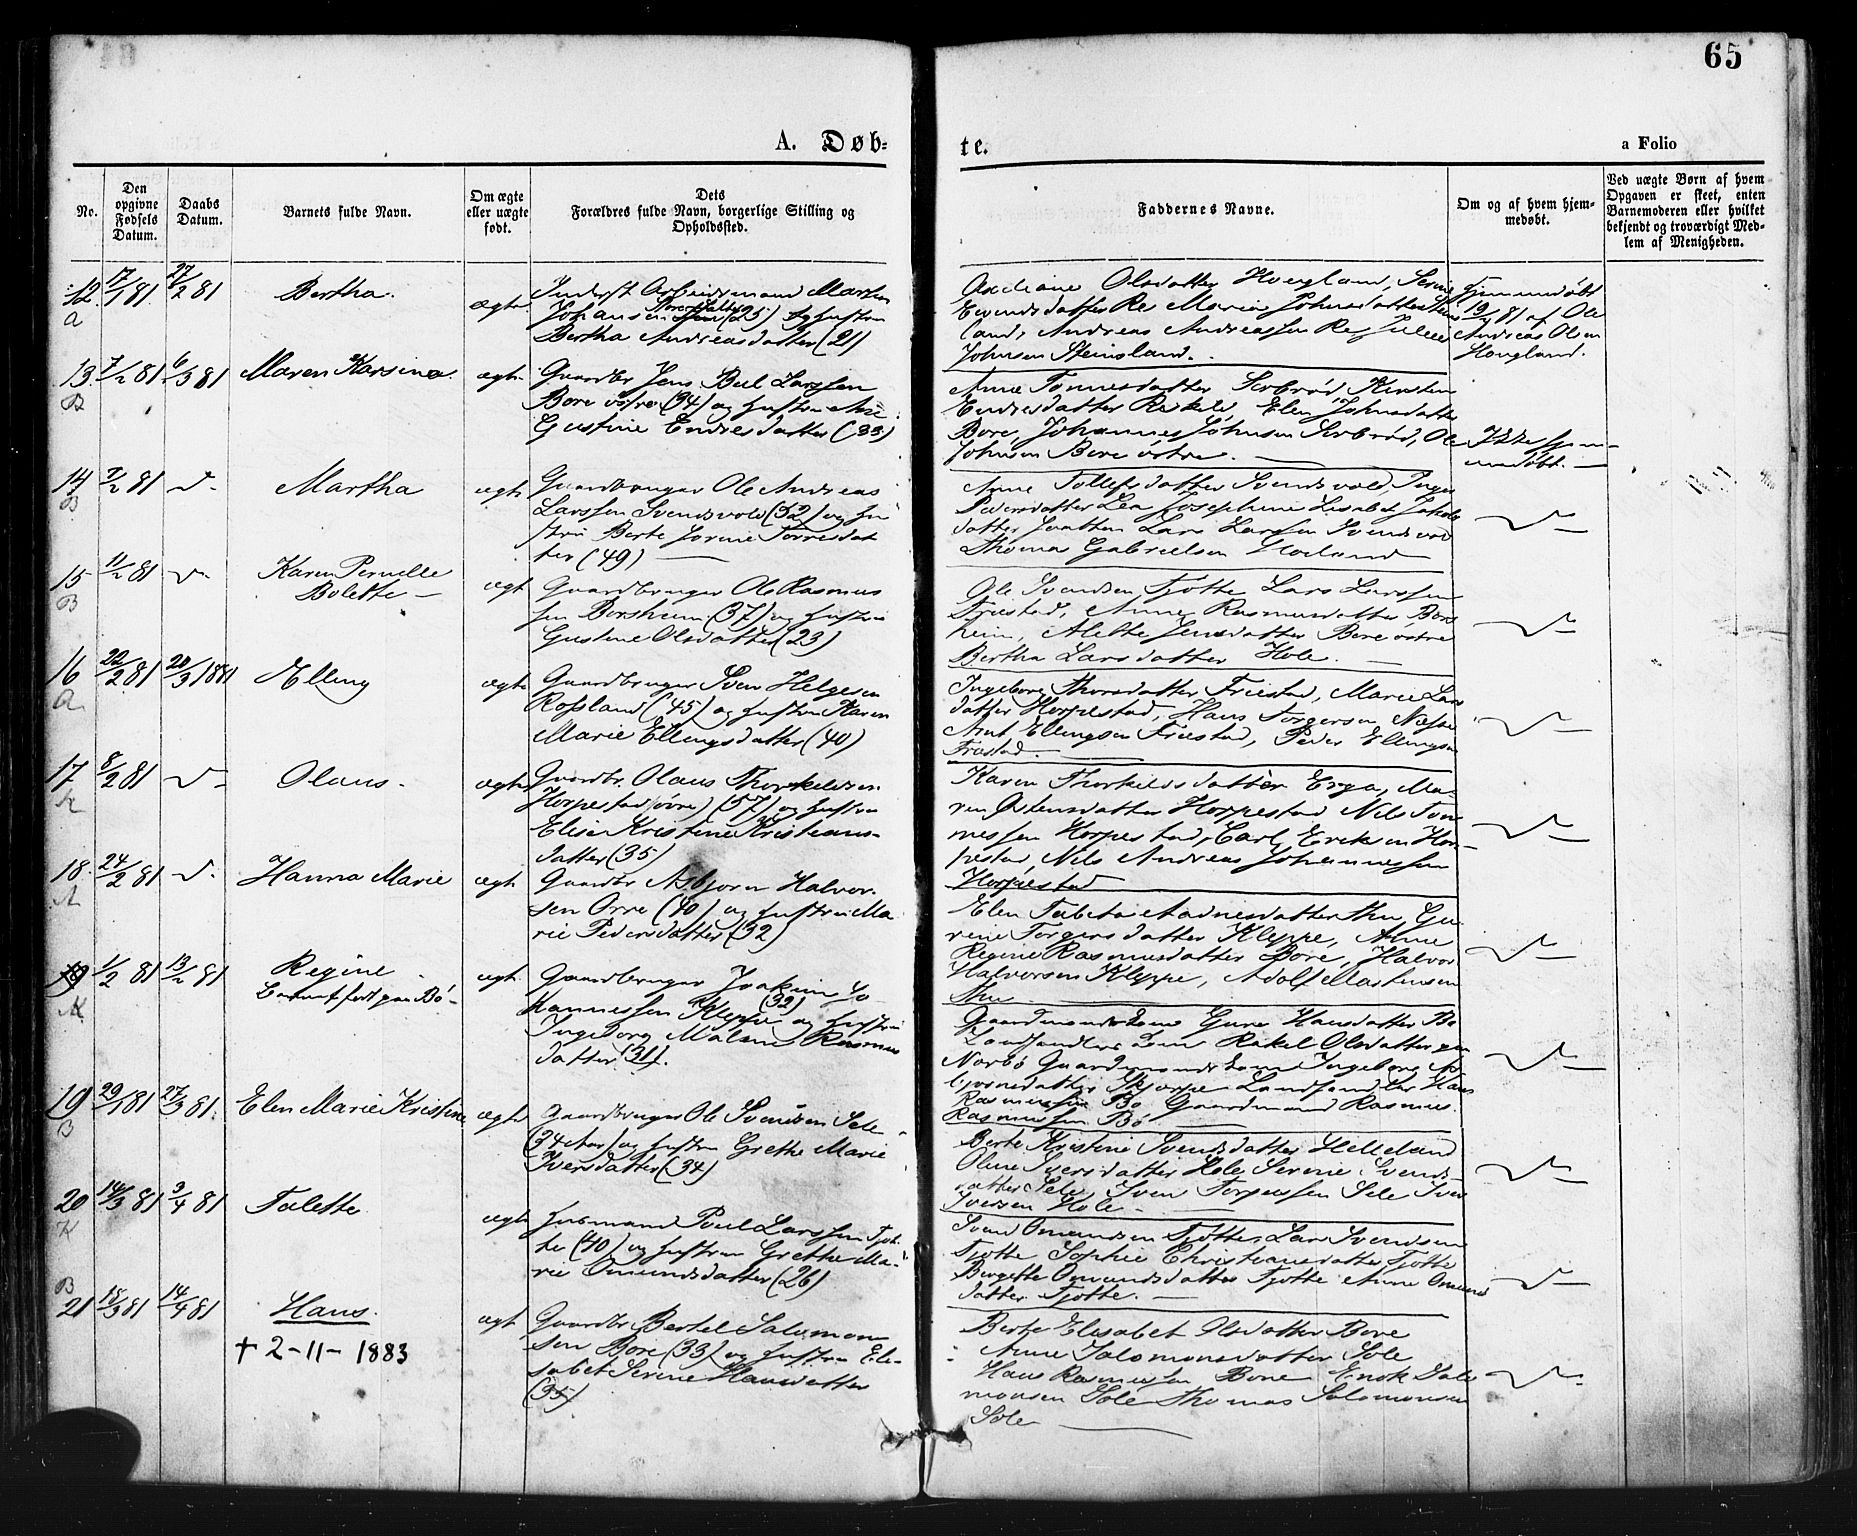 65
A. Døb-
te.
a Folio
No.
Den opgivne Fødsels Datum.
Daabs Datum.
Barnets fulde Navn.
Om ægte eller uægte født.
Dets Forældres fulde Navn, borgerlige Stilling og Opholdssted.
Faddernes Navne.
Om og af hvem hjemmedøbt.
Ved uægte Børn af hvem Opgaven er skeet, enten Barnemoderen eller hvilket bekjendt og troværdigt Medlem af Menigheden.
12 A
17/1 81
27/2 81
Bertha.
ægte
Inderst Arbeidsmand Marten
Johansen (25) og Hustru
Bertha Andreasdatter (21)
Olsdatter Hougland, Serine
Andreas Andreassen Re,
Johnsen Steinsland.
Hjemmedøbt
19/1 81 af Ole
Andreas Olsen
Hougland.
13 B
7/2 81
6/3 81
Maren Karsine
ægte
Gaardbr Jens Larssen
Bore østre (34) og Hustru Ane
Gustine Endresdatter (33)
Anne Tønnesdatter Serbrød, Kirsten
Endresdatter Elen Johnsdatter
Bore, Johannes Johnsen Serbrød, Ole
Johnsen Bore østre.
Ikke hjem-
medøbt.
14 B
7/2 81
Martha
ægte
Gaardbruger Ole Andreas
Larssen Svendsvold (32) og Hu
stru Berte Jorine Torresdat
ter (49)
Anne Tollefsdatter Svendsvold, Inger
Pedersdatter Josephine Lisabet
datter Lars Larssen Svendsvold
Thomas Gabrielsen
15 B
11/2 81
Karen Pernelle
Bolette
ægte
Gaardbruger Ole Rasmus
sen Borsheim (37) og Hustru
Gustine Olsdatter (23)
Ole Svendsen Tjøtte Lars Larssen
Friestad, Anne Rasmusdatter Bors
heim, Alette Jensdatter Bore østre
Bertha Larsdatter Hole.
16 A
22/2 81
20/3 1881
Elling
ægte
Gaardbruger Sven Helgesen
Rossland (45) og Hustru Karen
Marie Ellingsdatter (40)
Ingeborg Thorsdatter Friestad, Marie Lars
datter Horpestad, Hans Torgersen Næsse
Ellingsen Friestad, Peder Ellingsen
Friestad
17 K
8/2 81
Olaus.
ægte
Gaardbr. Olaus Thorkeldsen
Horpestad (57) og Hustru
Elise Kristine Kristians-
datter (35)
Karen Thorkeldsdatter Erga, Ma-
ren Østensdatter Horpestad Nils Tøn
nessen Horpestad, Carl Eriksen Hor-
pestad, Nils Andreas Johannessen
Horpestad
18 A
24/2 81
Hanna Marie
ægte
Gaardbr Asbjørn Halvor-
sen Orre (40) og Hustru Ma-
rie Pedersdatter (32)
Elen Tabeta Aadnesdatter Thu, Gu
rine Torgersdatter Kleppe, Anne
Regine Rasmusdatter Bore, Halvor
Halvorsen Kleppe, Adolf Mathisen
Thu
19 K
1/2 81
13/2 81
Regine
Barnet født paa Bø
ægte
Gaardbruger Joakim Jo
hannessen Kleppe (32) og Hustru
Ingeborg Malene Rasmus
datter (31).
Gaardmandskone Gure Hansdatter Bø
Landhandlers kone Rakel Olsdatter
Nærbø Gaardmandskone Ingeborg As
bjørnsdatter Landhandler Hans
Rasmussen Bø Gaardmand Rasmus
Rasmussen Bø
19 B
29/1 81
27/3 81.
Elen Marie Kristine
ægte
Gaardbruger Ole Svendsen Sele
(34 Aar) og Hustru Grethe Marie
Iversdatter (34)
Berte Kristine Svendsdatter Helleland
Oline Iversdatter Hole Serine Svends-
datter Sele, Sven Torgersen Sele Iver
Iversen Hole
20 K
14/3 81
3/4 81
Talette
ægte
Husmand Poul Larssen Tjøt-
te (40) og Hustru Grethe Ma-
rie Omundsdatter (26)
Svend Omundsen Tjøtte, Lars Svendsen
Tjøtte Sophie Christiansdatter Tjøtte
Bergitte Omundsdatter Tjøtte Anne Omunds
datter Tjøtte.
B 21
18/3 81
14/4 81
Hans.
+ 2-11-1883
ægte
Gaardbr Bertel Salomon
sen Bore (33) og Hustru Eli-
sabet Serine Hansdatter
(35)
Berte Elisabet Olsdatter Bore
Anne Salomonsdatter Sole
Hans Rasmussen Bore Enok Salo
monsen Sole Thomas Salomonsen
Sole